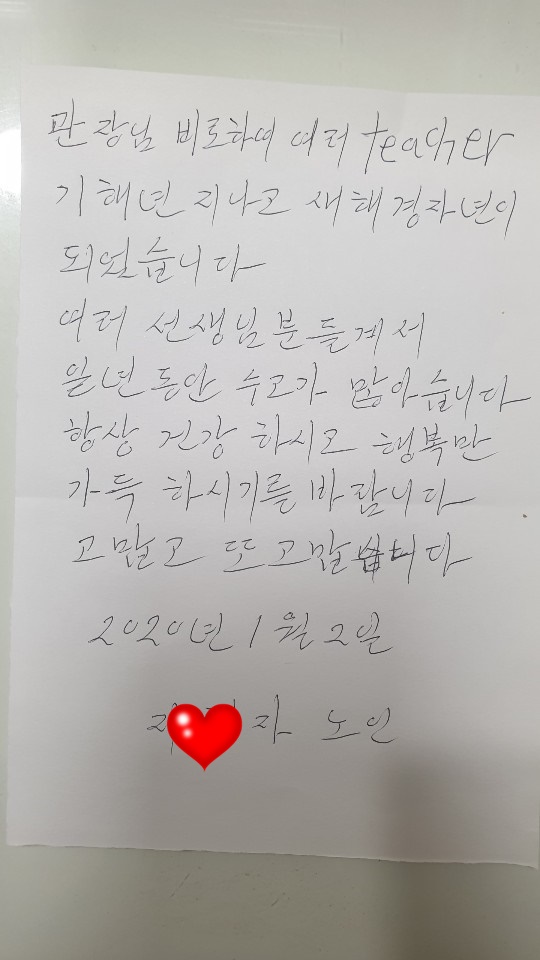 관장님 비로하여 여러 teacher
기해년 지나고 새해경자년이
되었습니다
여러 선생님분들께서
일년동안 수고가 많아습니다
항상 건강 하시고 행복만
가득 하시기를 바랍니다
고맙고 또 고맙습니다
2020년 1월 2일
자 노인